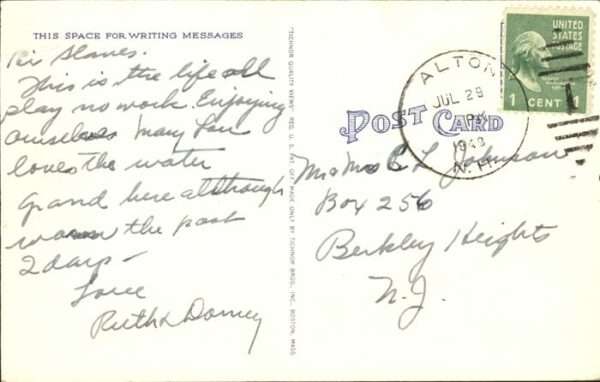 THIS SPACE FOR WRITING MESSAGES
This is the life all
play no work. Enjoying
ourselves Mary Lou
loves the water
grand here although
warm the past
2 days -
Love
Ruth &
"TICHNOR QUALITY VIEWS" REG. U. S. PAT. OFF. MADE ONLY BY TICHNOR BROS., INC., BOSTON, MASS.
POST CARD
UNITED
STATES
POSTAGE
1 CENT 1
ALTON
JUL 29
PM
N.H.
Mr Mrs C L Johnson
Box 256
Berkley Heights
N.J.